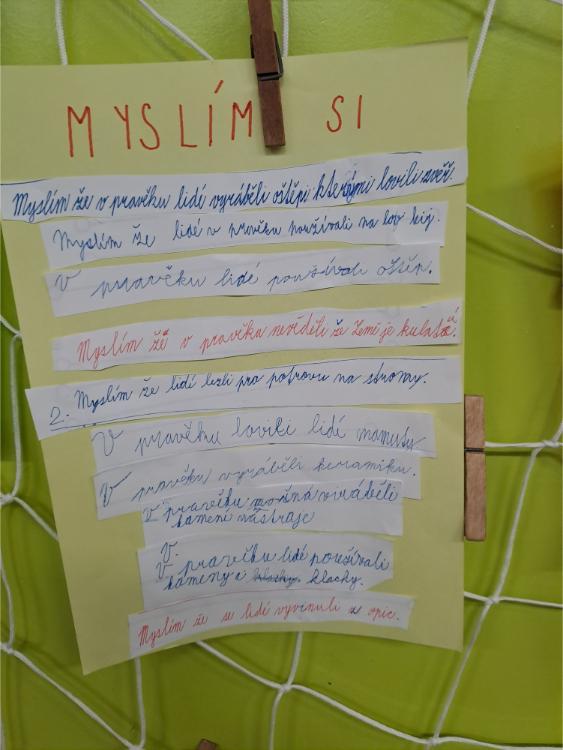 MYSLÍM SI
Myslím že v pravěku lidí vyráběli oštěpi kterými lovili zvěř.
Myslím že lidé v pravěku používali na lov kij.
V pravěku lidé používali oštěp.
Myslím že v pravěku nevěděli že Země je kulatá.
2. Myslím že lidí lezli pro potravu na stromy.
V pravěku lovili lidé mamuty
V pravěku vyráběli keramiku.
V pravěku možná viráběli
kamení nástraje
V.
V pravěku lidé používali
kameny a klacky.
Myslím že se lidé vyvinuli z opic.